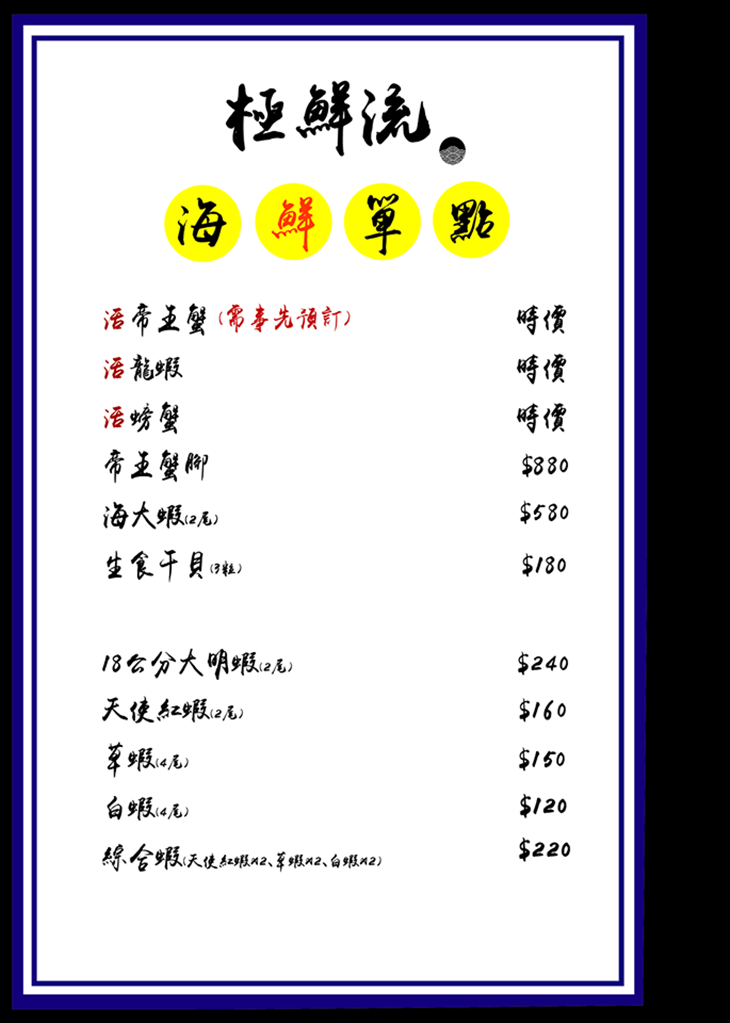 極鮮流
海鮮單點
活帝王蟹(需事先預訂) 時價
活龍蝦 時價
活螃蟹 時價
帝王蟹腳 $880
海大蝦(2尾) $580
生食干貝(3粒) $180
18公分大明蝦(2尾) $240
天使紅蝦(2尾) $160
草蝦(4尾) $150
白蝦(4尾) $120
綜合蝦(天使紅蝦x2、草蝦x2、白蝦x2) $220